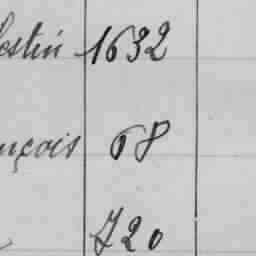 estin 1632
nçois 68
720